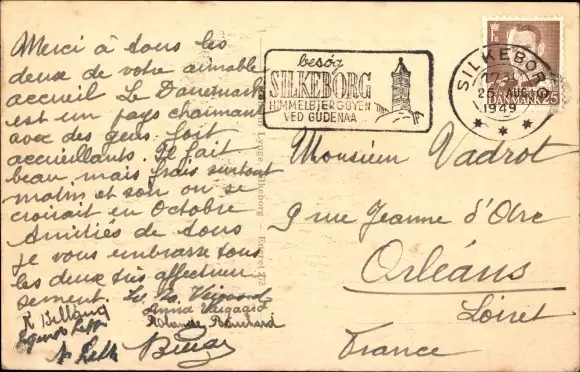 Merci à tous les
deux de votre aimable
accueil Le Danemark
est un pays charmant
avec des gens fort
accueillants. Il fait
beau, mais frais surtout
matin et soir on se
croirait en Octobre
Amitiés de tous
je vous embrasse tous
les deux très affectueu
sement.
Anna
Lyngs Silkeborg
besøg
SILKEBORG
HIMMELBJERGBYEN
VED GUDENAA
SILKEBORG
26 AUG
1949
DANMARK 25
Monsieur Vadrot
9 rue Jeanne d'Arc
Orléans
Loiret
France